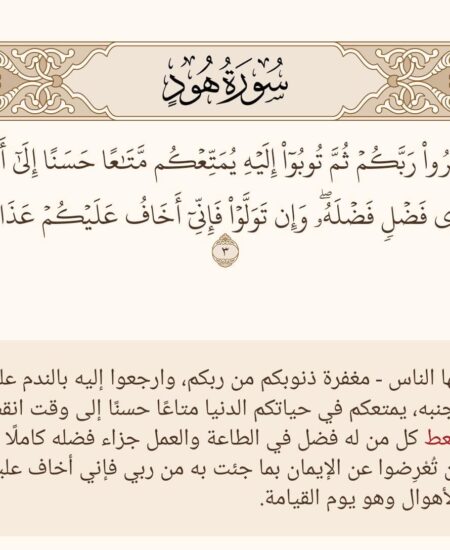 سُورَةُ هُودٍ
رُواْ رَبَّكُمۡ ثُمَّ تُوبُوٓاْ إِلَيۡهِ يُمَتِّعۡكُم مَّتَٰعًا حَسَنًا إِلَىٰٓ أَ
ى فَضۡلٖ فَضۡلَهُۥۖ وَإِن تَوَلَّوۡاْ فَإِنِّيٓ أَخَافُ عَلَيۡكُمۡ عَذَا
٣
ها الناس - مغفرة ذنوبكم من ربكم، وارجعوا إليه بالندم عل
جنبه، يمتعكم في حياتكم الدنيا متاعًا حسنًا إلى وقت انقض
عط كل من له فضل في الطاعة والعمل جزاء فضله كاملًا
ن تُعْرِضوا عن الإيمان بما جئت به من ربي فإني أخاف علي
لأهوال وهو يوم القيامة.